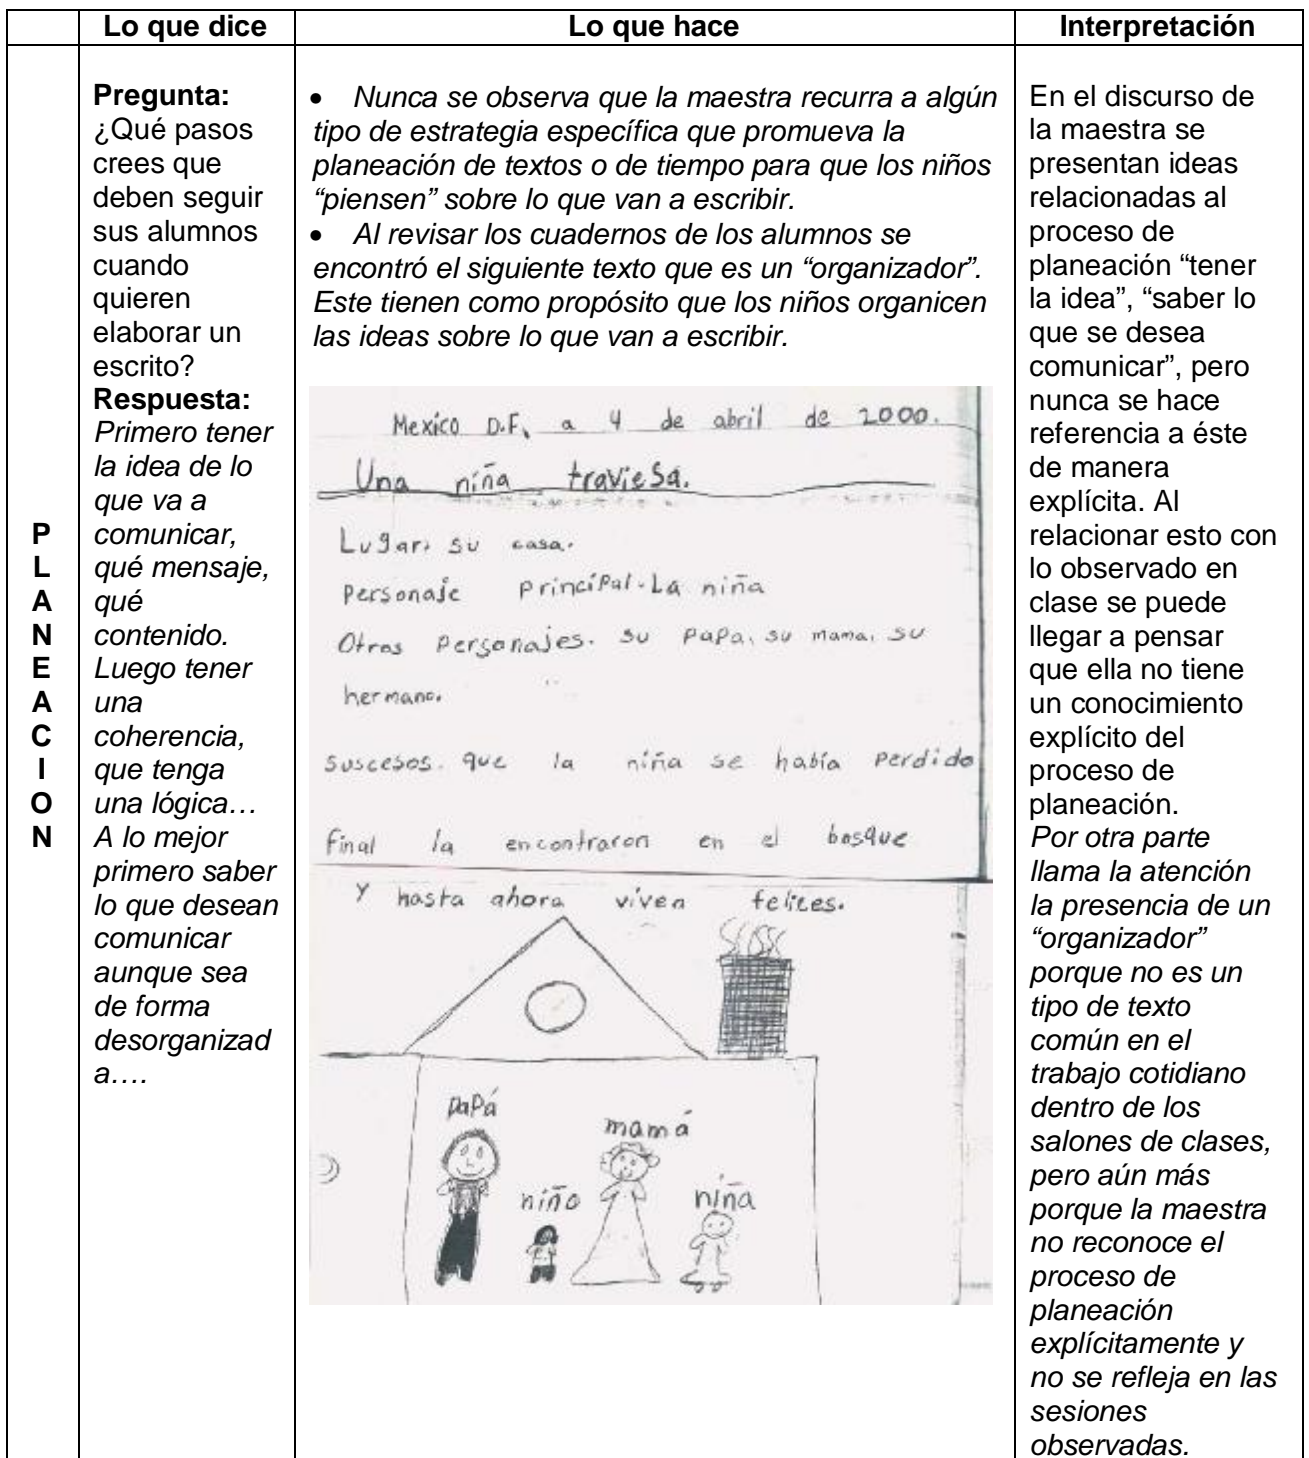 Lo que dice
Lo que hace
Interpretación
P
L
A
N
E
A
C
I
O
N
Pregunta:
¿Qué pasos
crees que
deben seguir
sus alumnos
cuando
quieren
elaborar un
escrito?
Respuesta:
Primero tener
la idea de lo
que va a
comunicar,
qué mensaje,
qué
contenido.
Luego tener
una
coherencia,
que tenga
una lógica…
A lo mejor
primero saber
lo que desean
comunicar
aunque sea
de forma
desorganizad
a….
• Nunca se observa que la maestra recurra a algún
tipo de estrategia específica que promueva la
planeación de textos o de tiempo para que los niños
“piensen” sobre lo que van a escribir.
• Al revisar los cuadernos de los alumnos se
encontró el siguiente texto que es un “organizador”.
Este tienen como propósito que los niños organicen
las ideas sobre lo que van a escribir.
Mexico D.F, a 4 de abril de 2000.
Una niña traviesa.
Lugar. su casa.
Personaje principal. La niña
Otros Personajes. su papa, su mama, su
hermano.
suscesos. que la niña se había perdido
final la encontraron en el bosque
Y hasta ahora viven felices.
papá
mamá
niño
niña
En el discurso de
la maestra se
presentan ideas
relacionadas al
proceso de
planeación “tener
la idea”, “saber lo
que se desea
comunicar”, pero
nunca se hace
referencia a éste
de manera
explícita. Al
relacionar esto con
lo observado en
clase se puede
llegar a pensar
que ella no tiene
un conocimiento
explícito del
proceso de
planeación.
Por otra parte
llama la atención
la presencia de un
“organizador”
porque no es un
tipo de texto
común en el
trabajo cotidiano
dentro de los
salones de clases,
pero aún más
porque la maestra
no reconoce el
proceso de
planeación
explícitamente y
no se refleja en las
sesiones
observadas.